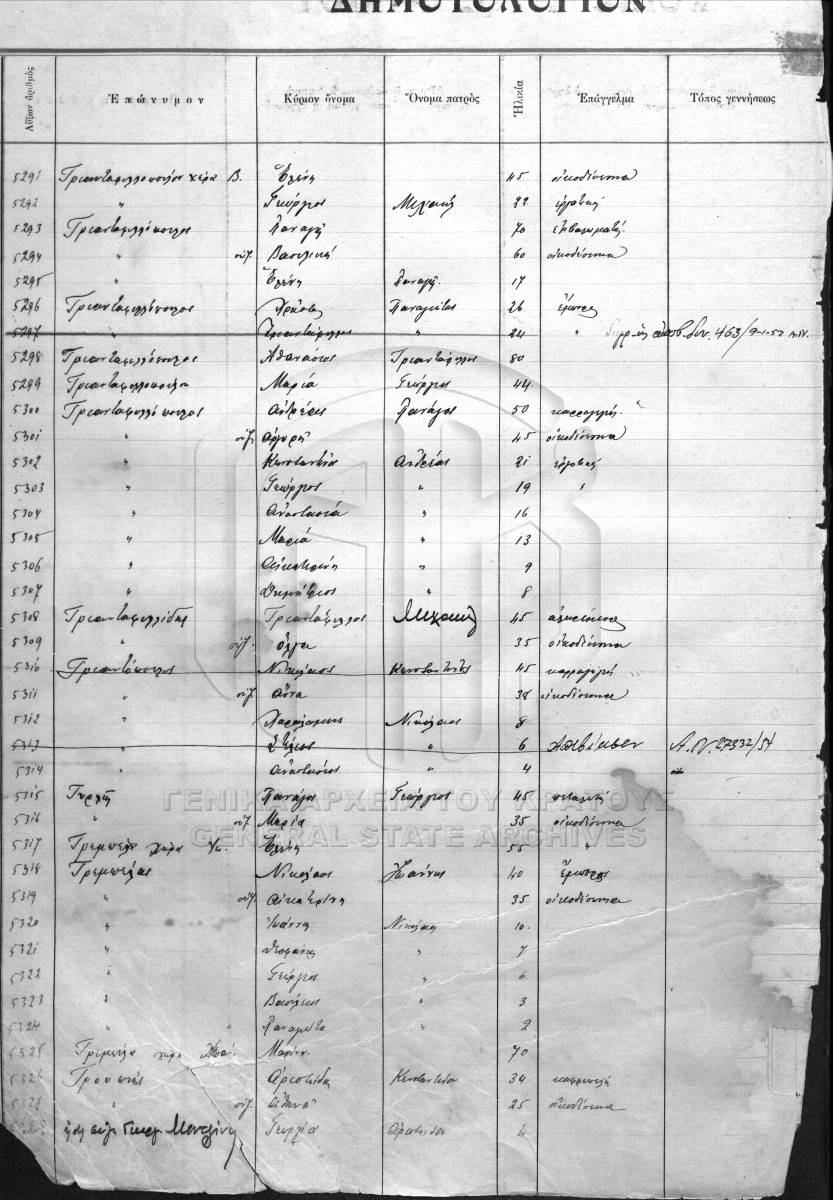 ΔΗΜΟΤΟΛΟΓΙΟΝ
Αὔξων ἀριθμὸς Ἐπώνυμον Κύριον ὄνομα Ὄνομα πατρὸς Ἡλικία Ἐπάγγελμα Τόπος γεννήσεως
5291 Τριανταφυλλοπούλου χήρα Β. Ἑλένη 45 οἰκοδέσποινα
5292 " Γεώργιος Μιχαήλ 22 ἐργάτης
5293 Τριανταφυλλόπουλος Παναγῆς 70
5294 " συζ. Βασιλική 60 οἰκοδέσποινα
5295 " Ἑλένη Παναγῆ 17
5296 Τριανταφυλλόπουλος Χρῆστος Παναγιώτης 26 ἔμπορος
5297 " Τριαντάφυλλος " 24 " 463/9-1-52
5298 Τριανταφυλλόπουλος Ἀθανάσιος Τριαντάφυλλος 80
5299 Τριανταφυλλοπούλου Μαρία Γεώργιος 44
5300 Τριανταφυλλόπουλος Ἀνδρέας Πανάγος 50 καρραγωγεύς "
5301 " συζ. Ἀργυρή 45 οἰκοδέσποινα
5302 " Κωνσταντῖνος Ἀνδρέας 21 ἐργάτης
5303 " Γεώργιος " 19 "
5304 " Ἀναστασία " 16
5305 " Μαρία " 13
5306 " Αἰκατερίνη " 9
5307 " Δημήτριος " 8
5308 Τριανταφυλλίδης Τριαντάφυλλος Μιχαήλ 45
5309 " συζ. Ὄλγα 35 οἰκοδέσποινα
5310 Τριαντόπουλος Νικόλαος Κωνσταντῖνος 45 καρραγωγεύς
5311 " συζ. Ἄννα 38 οἰκοδέσποινα
5312 " Χαράλαμπος Νικόλαος 8
5313 " Στέλιος " 6 Ἀπεβίωσεν Α.Ν. 27332/54
5314 " Ἀναστάσιος " 4
5315 Πανάγος Γεώργιος 45
5316 " συζ. Μαρία 35 οἰκοδέσποινα
5317 Τρεμπέλα χήρα Ἰω. Ἑλένη 55 "
5318 Τρεμπέλας Νικόλαος Ἰωάννης 40 ἔμπορος
5319 " συζ. Αἰκατερίνη 35 οἰκοδέσποινα
5320 " Ἰωάννης Νικόλαος 10
5321 " " 7
5322 " Γεώργιος " 6
5323 " Βασίλειος " 3
5324 " Παναγιώτα " 2
5325 Τρεμπέλα χήρα 70
Ἀριστείδης Κωνσταντίνου 34 καφφεπώλης
" συζ. Ἀθηνᾶ 25 οἰκοδέσποινα
Γεωργία Ἀριστείδου 4
ΓΕΝΙΚΑ ΑΡΧΕΙΑ ΤΟΥ ΚΡΑΤΟΥΣ
GENERAL STATE ARCHIVES